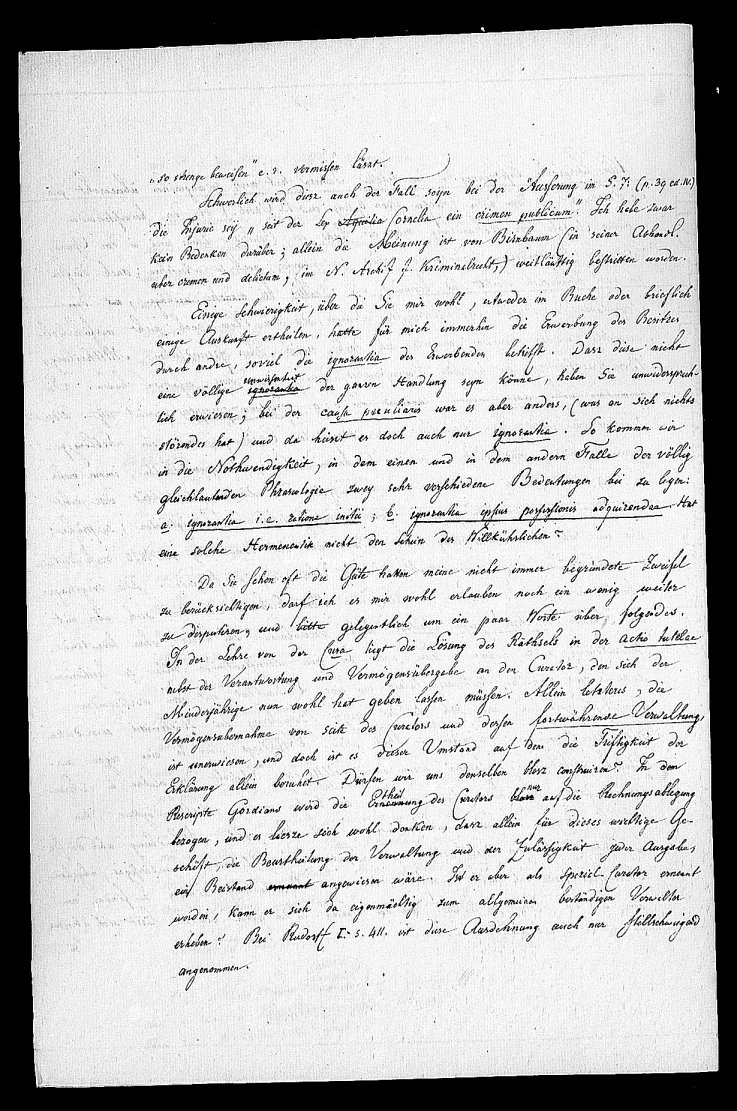 „so strenge beweisen" e. r. vermissen lässt.
Schwerlich wird diesz auch der Fall seyn bei der Äusserung in S. 7: (p. 39 ed. IV.)
die Injurie sey „seit der Lex Aquilia Cornelia ein crimen publicum". Ich habe zwar
kein Bedenken darüber; allein die Meinung ist von Birnbaum (in seiner Abhandl.
über crimen und delictum, im N. Archif f. Kriminalrecht,) weitläuftig bestritten worden.
Einige Schwierigkeit, über die Sie mir wohl, entweder im Buche oder brieflich
einige Auskunft ertheilen, hatte für mich immerhin die Erwerbung des Besitzes
durch andre, soviel die ignorantia des Erwerbenden betrifft. Dasz diese nicht
eine völlige ignorantia Unwissenheit der ganzen Handlung seyn könne, haben Sie unwidersprech-
lich erwiesen; bei der causa peculiaris war es aber anders, (was an sich nichts
störendes hat) und da heisst es doch auch nur ignorantia. So kommen wir
in die Nothwendigkeit, in dem einen und in dem andern Falle der völlig
gleichlautenden Phraseologie zwey sehr verschiedene Bedeutungen bei zu legen:
a. ignorantia i. e. ratione initii; b. ignorantia ipsius possessionis adquirendae. Hat
eine solche Hermeneutik nicht den Schein des Willkührlichen?
Da Sie schon oft die Güte hatten meine nicht immer begründete Zweifel
zu berücksichtigen, darf ich es mir wohl erlauben noch ein wenig weiter
zu disputiren, und bitte gelegentlich um ein paar Worte über folgendes.
In der Lehre von der Cura liegt die Lösung des Räthsels in der actio tutelae
nebst der Verantwortung und Vermögensübergabe an den Curator, den sich der
Minderjährige nun wohl hat geben lassen müssen. Allein letzteres, die
Vermögensübernahme von seite des Curators und dessen fortwährende Verwaltung,
ist unerwiesen, und doch ist es dieser Umstand auf dem die Triftigkeit der
Erklärung allein beruhet. Dürfen wir uns denselben blosz construiren? In dem
Rescripte Gordians wird die Ernennung des Curators blosz nur auf die Rechnungsablegung
bezogen, und es liesze sich wohl denken, dasz allein für dieses wichtige Ge-
schäft, die Beurtheilung der Verwaltung und der Zulässigkeit jeder Ausgabe,
ein Beistand ernannt angewiesen wäre. Ist er aber als spezial-Curator ernannt
worden, kann er sich da eigenmächtig zum allgemeinen beständigen Verwalter
erheben? Bei Rudorff I. s. 411. ist diese Ausdehnung auch nur stillschweigend
angenommen.